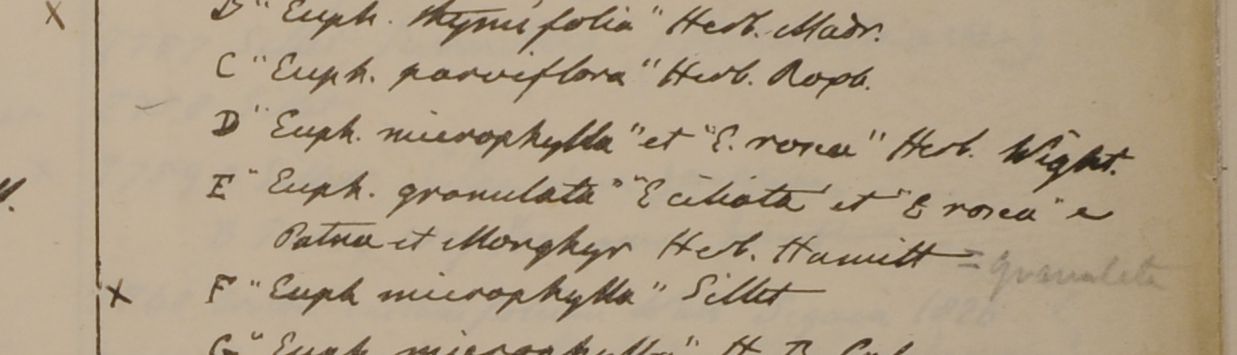 B "Euph. thymifolia" Herb. Madr.
C "Euph. parviflora" Herb. Roxb.
D "Euph. microphylla" et "E. rosea" Herb. Wight.
E "Euph. granulata" "E ciliata et "E rosea" e
Patna et Monghyr Herb. Hamilt = granulata
x F "Euph microphylla" Sillet
G "Euph. microphylla" H. B. Cal